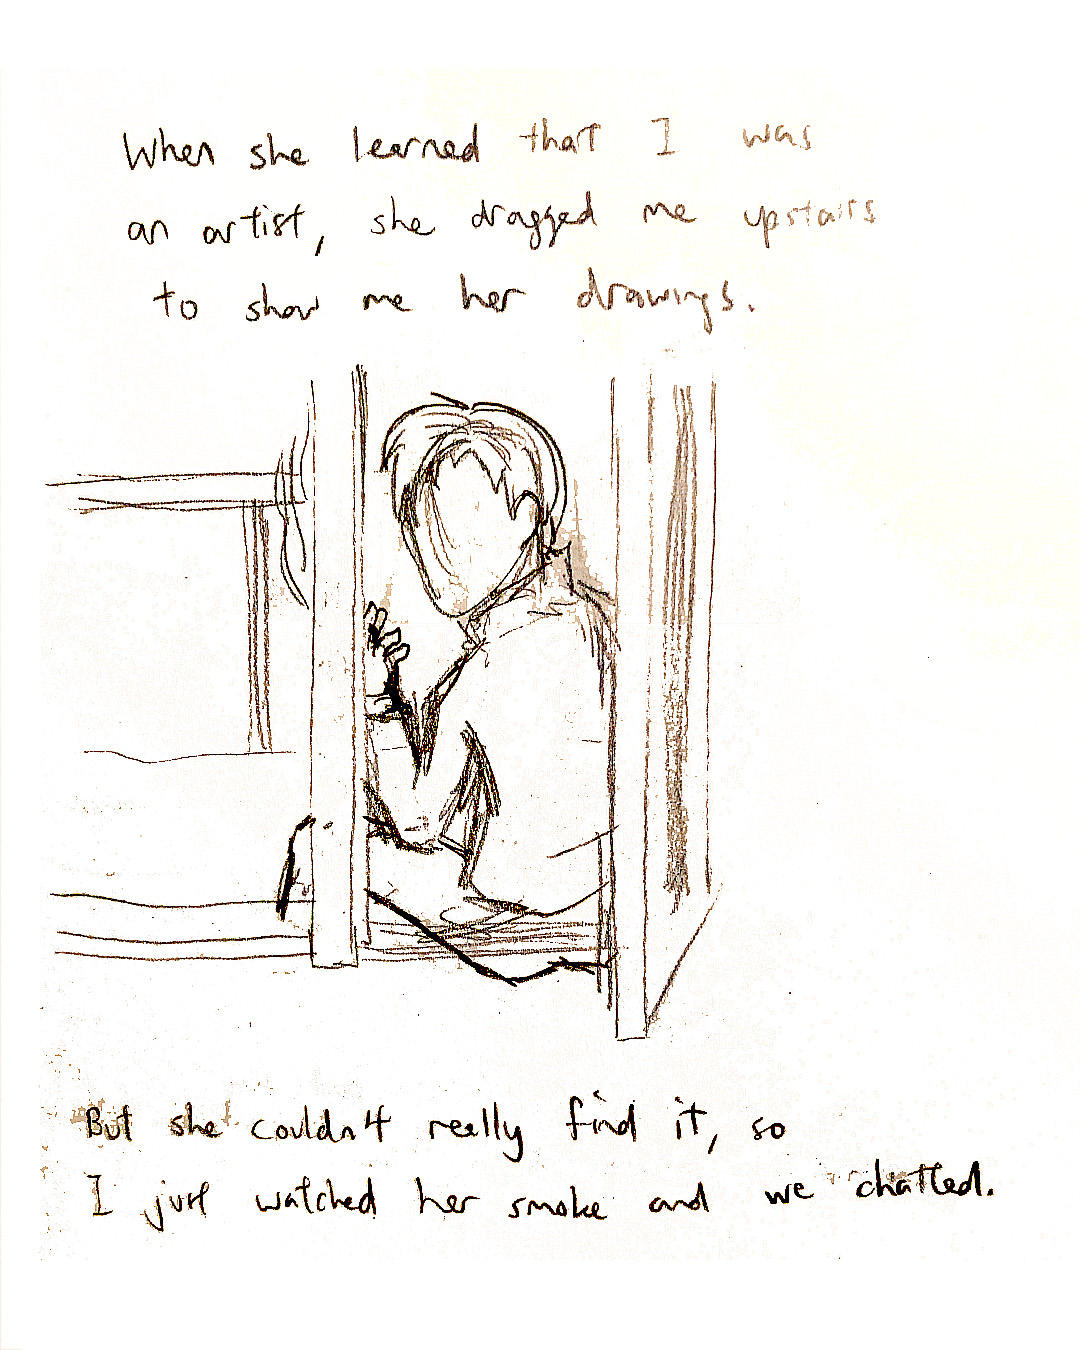 When she learned that I was
an artist, she dragged me upstairs
to show me her drawings.
But she couldn't really find it, so
I just watched her smoke and we chatted.